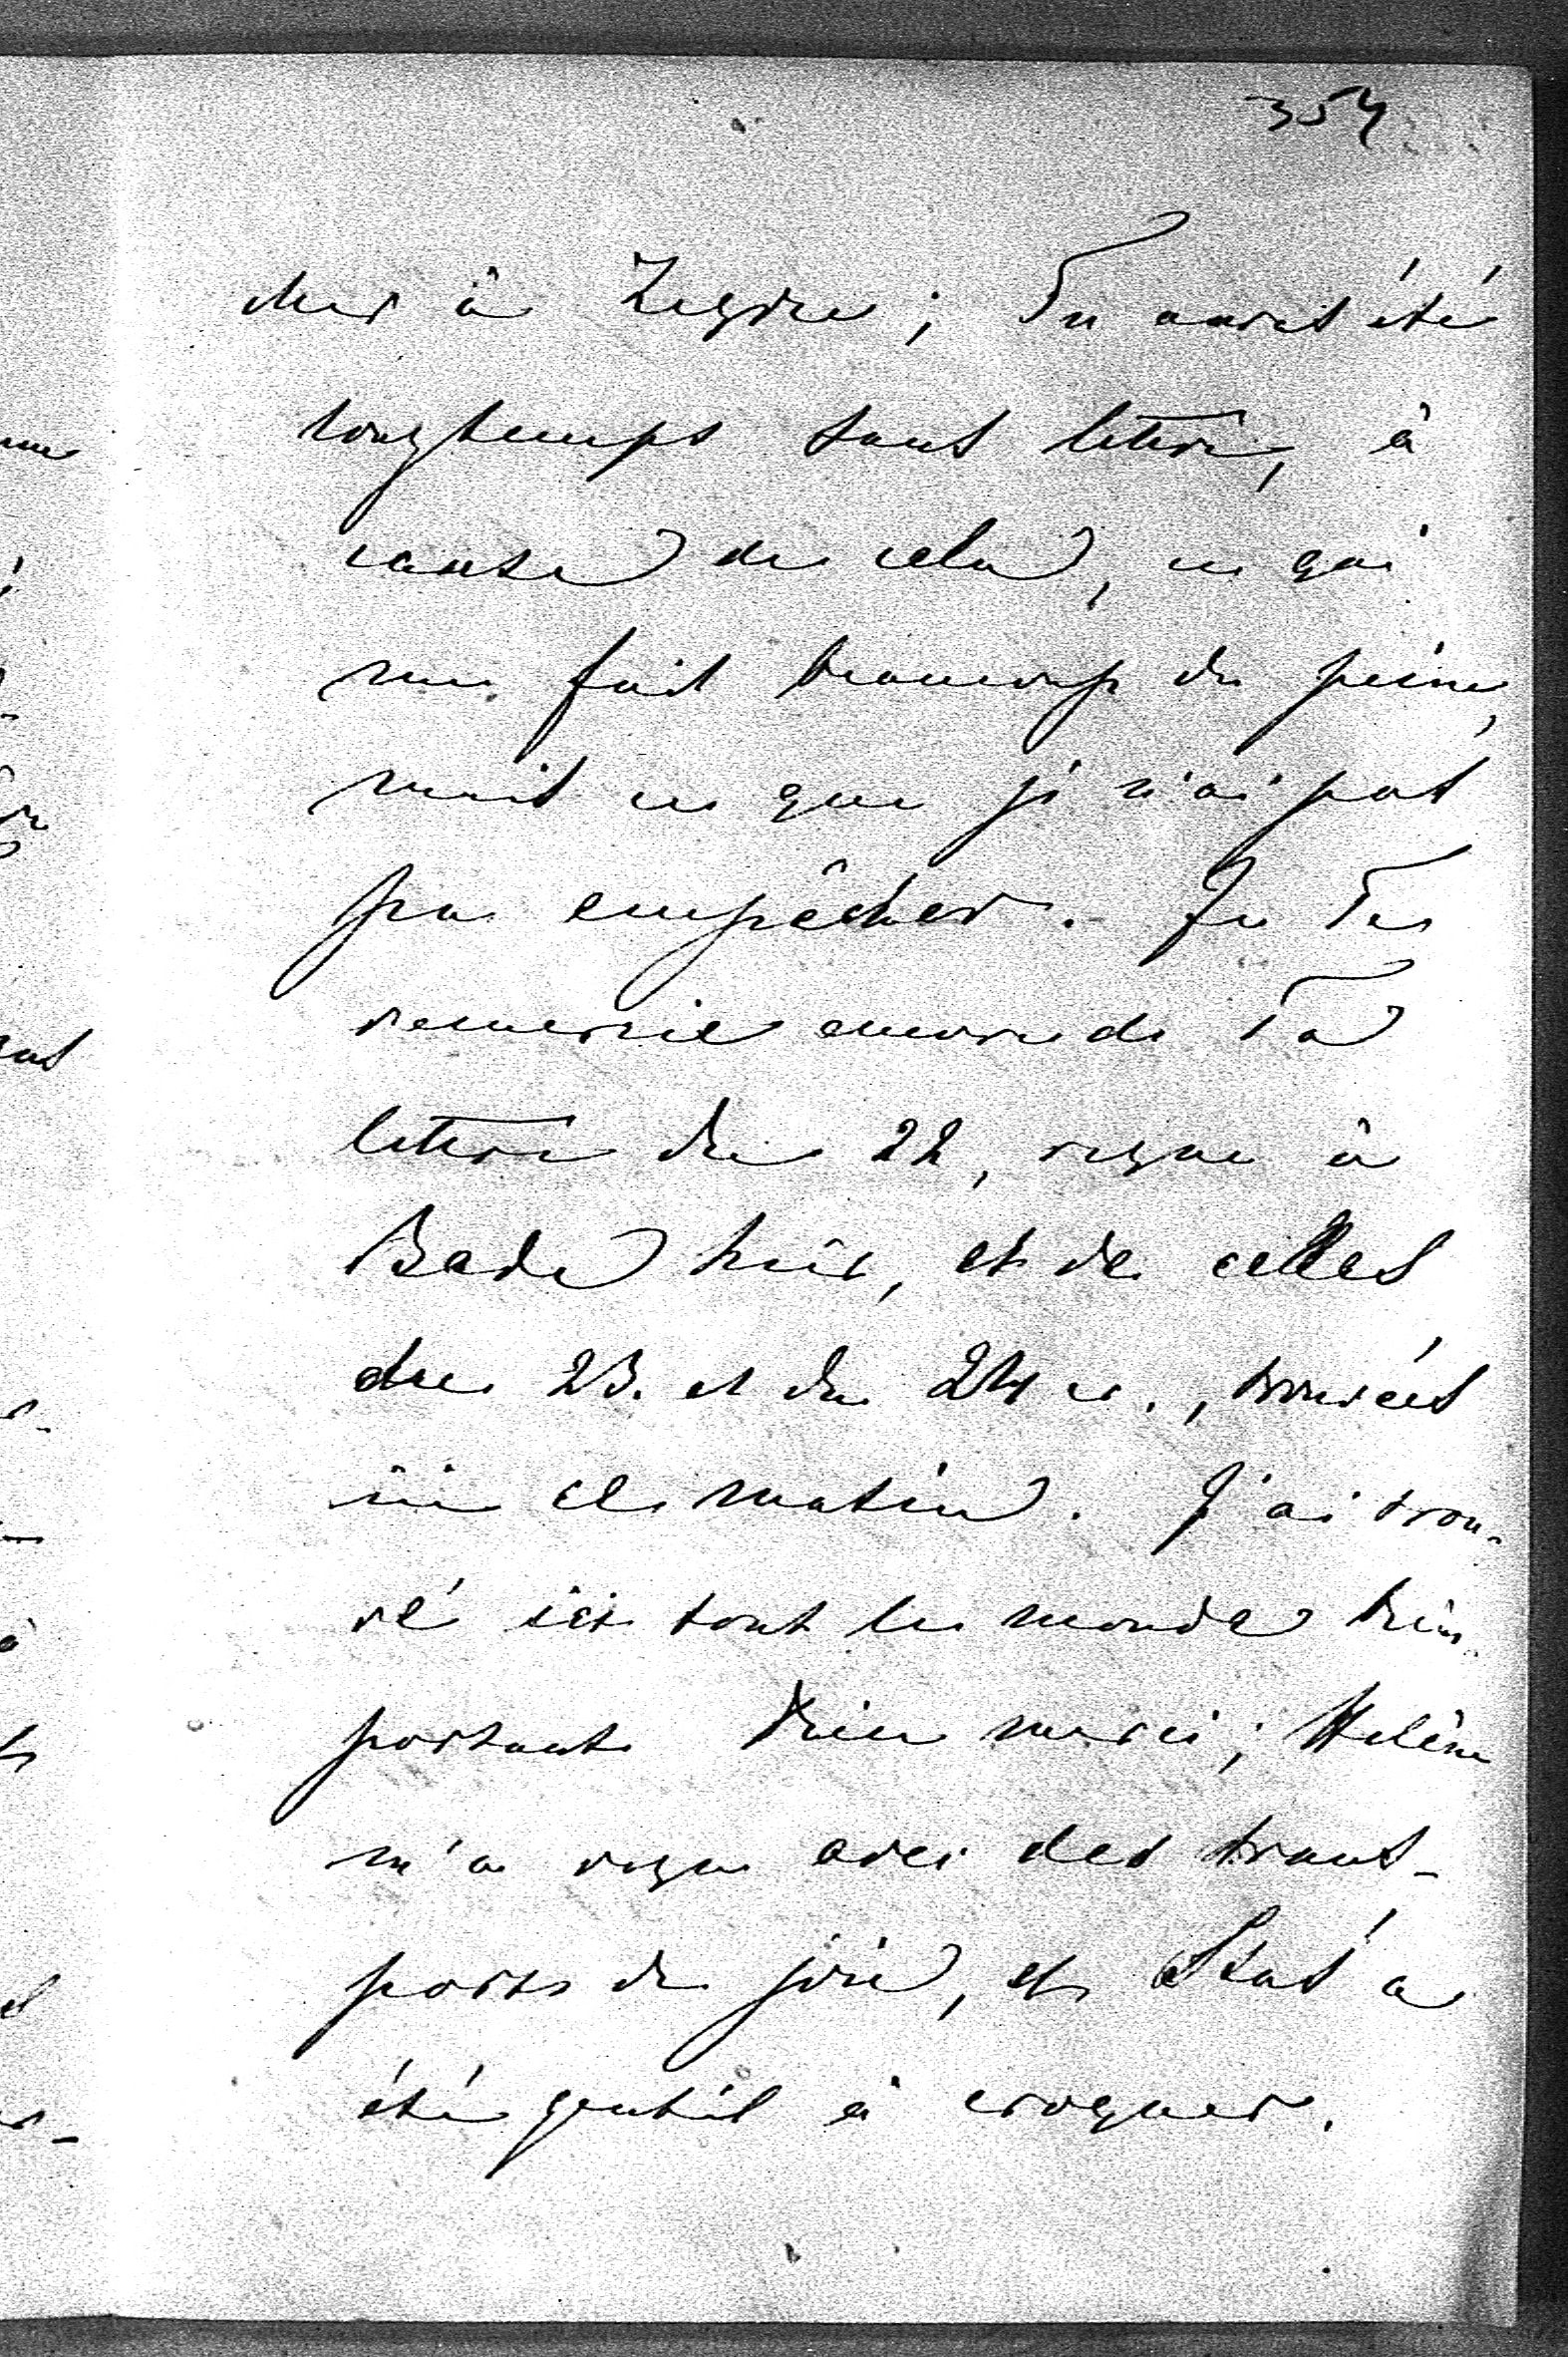 354
cher à Zegrze ; Tu auras été
longtemps sans lettre, à
cause de cela, ce qui
me fait beaucoup de peine,
mais ce que je n'ai pas
pu empêcher. Je Te
remercie encore de Ta
lettre du 22, reçue à
Bade hier, et de celles
du 23. et du 24 c., trouvées
ici ce matin. J'ai trou-
vé ici tout le monde bien
portant Dieu merci ; Helène
m'a reçu avec des trans-
ports de joie, et Stas a
été gentil à croquer.